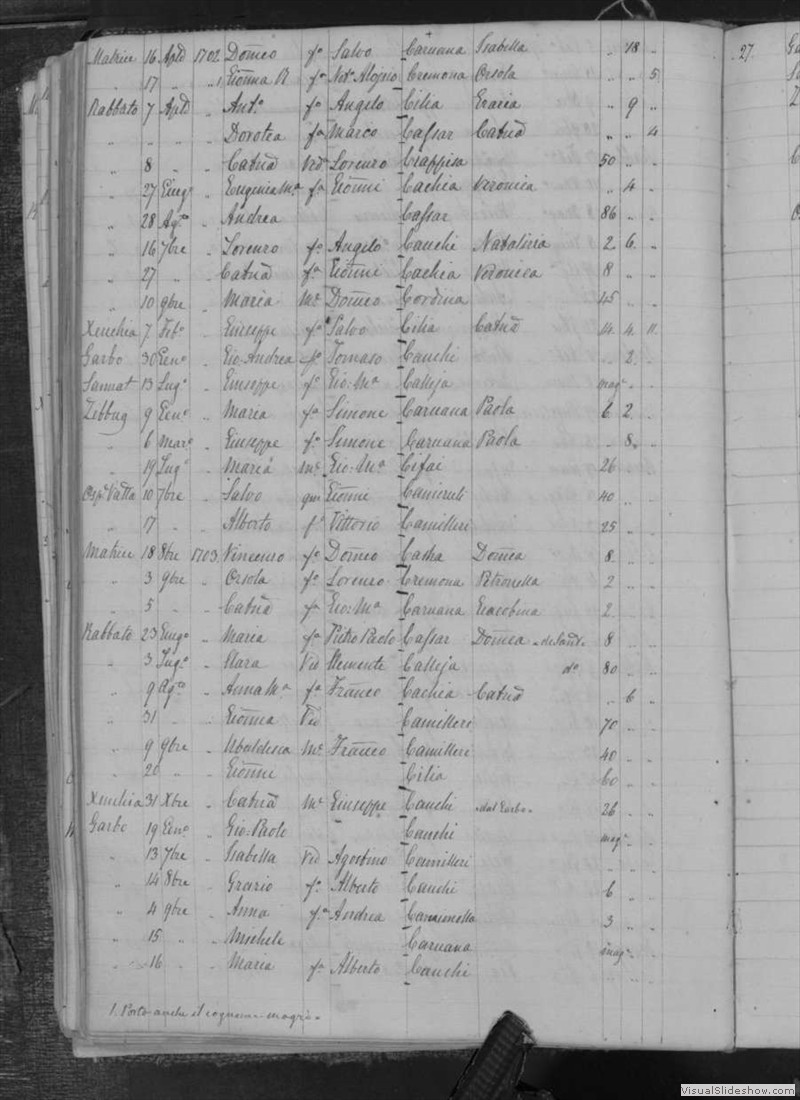 Matrice 16 Aple 1702 Domeo fo Salvo Caruana Isabella " 18 "
" 17 " " 1 Gionna R fa Notr Aloisio Cremona Orsola " " 5
Rabbato 7 Aple " Anto fo Angelo Cilia Grazia " 9 "
" " " " Dorotea fa Marco Cassar Catna " " 4
" 8 " " Catna Vida Lorenzo Ciappisa 50 " "
" 27 Giugo " Eugenia Ma fa Gionni Cachia Veronica " 4 "
" 28 Ago " Andrea Cassar 86 " "
" 16 7bre " Lorenzo fo Angelo Cauchi Natalizia 2 6 "
" 27 " " Catna fa Gionni Cachia Veronica 8 " "
" 10 9bre " Maria Me Domeo Cordina 45 " "
Xeuchia 7 Febo " Giuseppe fo Salvo Cilia Catna 14 4 11
Garbo 30 Geno " Gio Andrea fo Tomaso Cauchi " 2 "
Sannat 13 Lugo " Giuseppe fo Gio: Ma Calleja mage " "
Zebbug 9 Geno " Maria fa Simone Caruana Paola 6 2 "
" 6 Marzo " Giuseppe fo Simone Caruana Paola " 8 "
" 19 Lugo " Maria Me Gio: Ma Cifai 26 " "
Ospe Vatta 10 7bre " Salvo qm Gionni 40 " "
" 17 " " Alberto fo Vittorio Camilleri 25 " "
Matrice 18 8bre 1703 Vincenzo fo Domeo Domca 8 " "
" 3 9bre " Orsola fa Lorenzo Cremona Petronella 2 " "
" 5 " " Catna fa Gio: Ma Caruana Giacobina 2 " "
Rabbato 23 Giugo " Maria fa Pietro Paolo Cassar Domca 8 " "
" 3 Lugo " Clara Vid Clemente Calleja do 80 " "
" 9 Ago " Anna Ma fa Franco Cachia Catna " 6 "
" 31 " " Gionna Vid Camilleri 70 " "
" 9 9bre " Ubaldesca Me Franco Camilleri 40 " "
" 20 " " Gionni Cilia 60 " "
Xeuchia 31 Xbre " Catna Me Giuseppe Cauchi dal Garbo 26 " "
Garbo 19 Geno " Gio: Paolo Cauchi mage " "
" 13 7bre " Isabella Vid Agostino Camilleri " " "
" 14 8bre " Grazio fo Alberto Cauchi 6 " "
" 4 9bre " Anna fa Andrea 3 " "
" 15 " " Michele Caruana mage " "
" 16 " " Maria fa Alberto Cauchi " " "
1. Porto anche il cognome Magri.
27.
VisualSlideshow.com